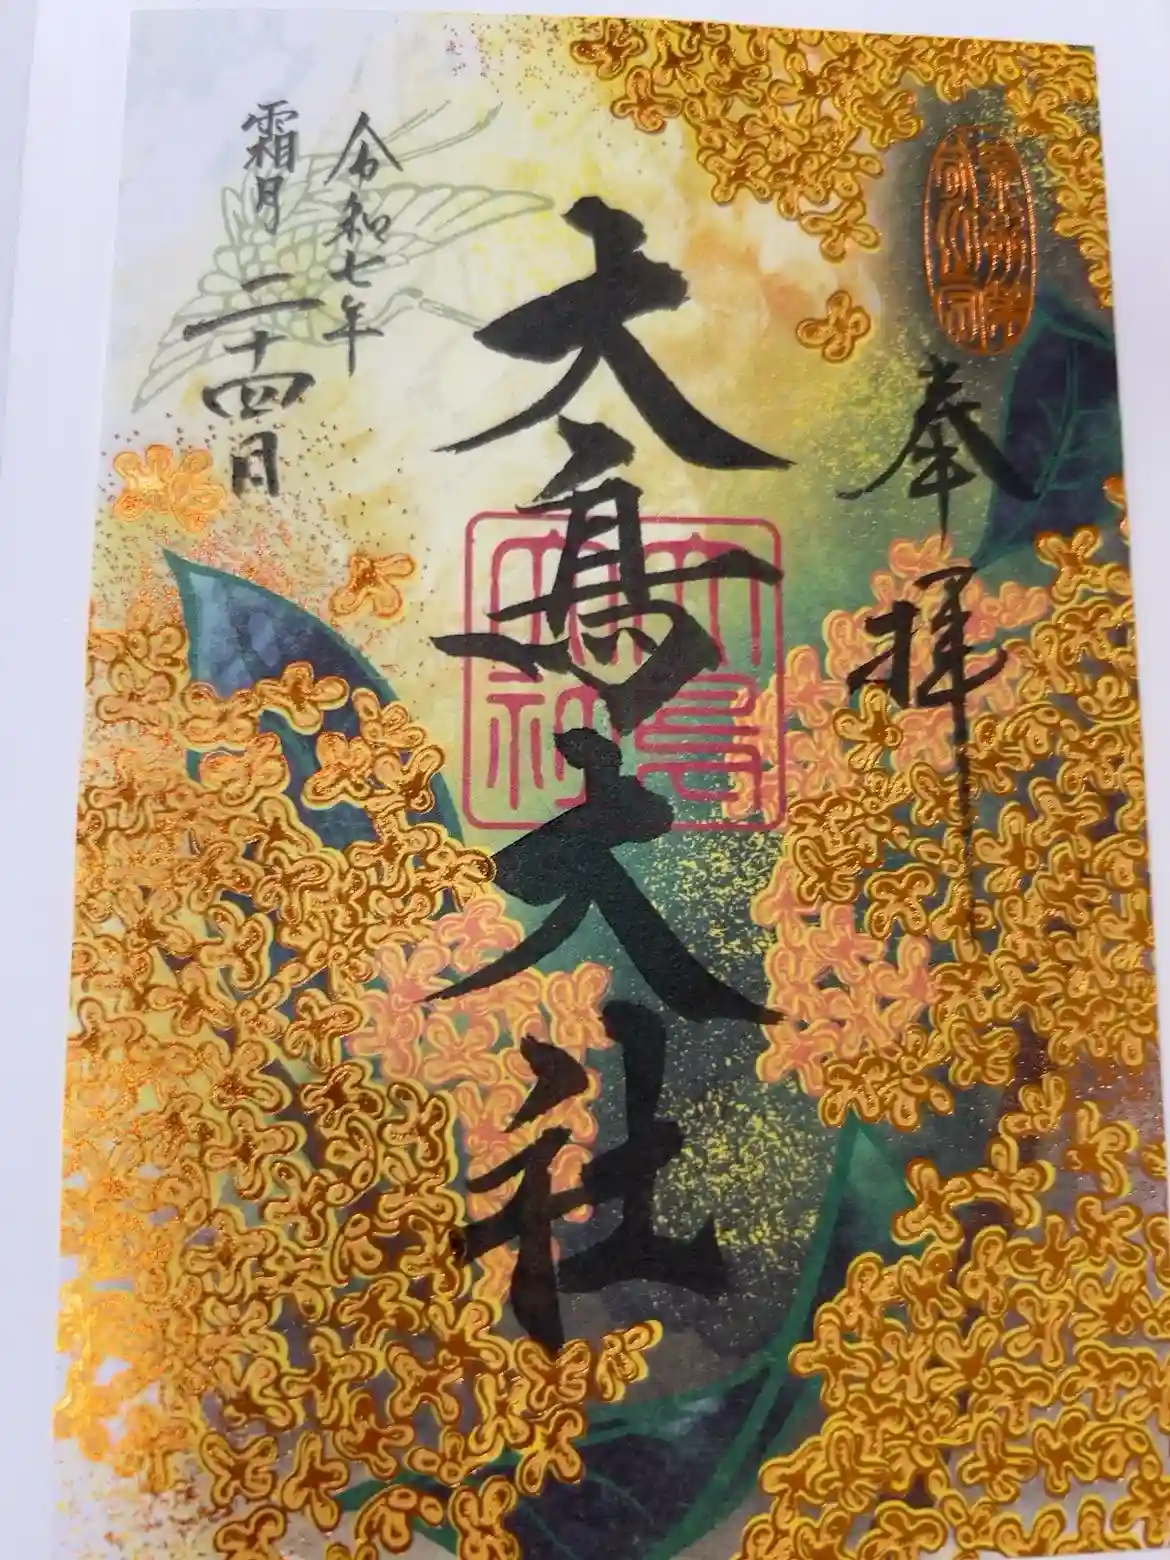 奉拝
大鳥大社
大鳥
大社
令和七年
霜月二十四日